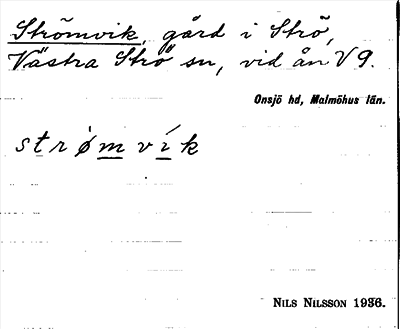 Strömvik, gård i Strö,
Västra Strö sn, vid ån V 9.
Onsjö hd, Malmöhus län.
strø̀mvík
NILS NILSSON 1936.